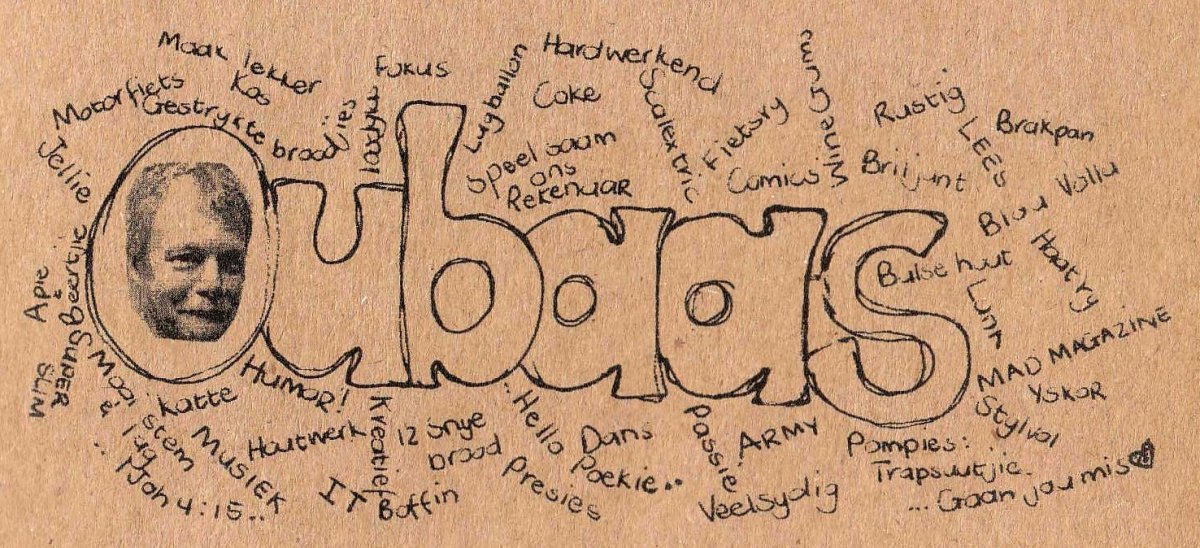 Maak lekker
Kos
Fokus
Lugballon
Hardwerkend
Coke
Scalextric
Fietsry
Rustig
LEES
Brakpan
Motorfiets
Gestrykte
broodjies
Speel saam
ons
Rekenaar
Comics
Briljant
Jellie
Blou
Hout
Oubaas
Bulsehuut
Apie
&
Beertjie
SUPER
SLIM
MAD MAGAZINE
YSKAR
Stylvol
Mooi stem
& lag
katte
HUMOR!
Houtwerk
Kreatief
12 snye
brood
..Hello
Poekie..
Dans
Passie
ARMY
Pampies:
Trapsuutjie.
...Gaan jou mis
MUSIEK
.. Joh 4:15...
IT
Boffin
presies
Veelsydig